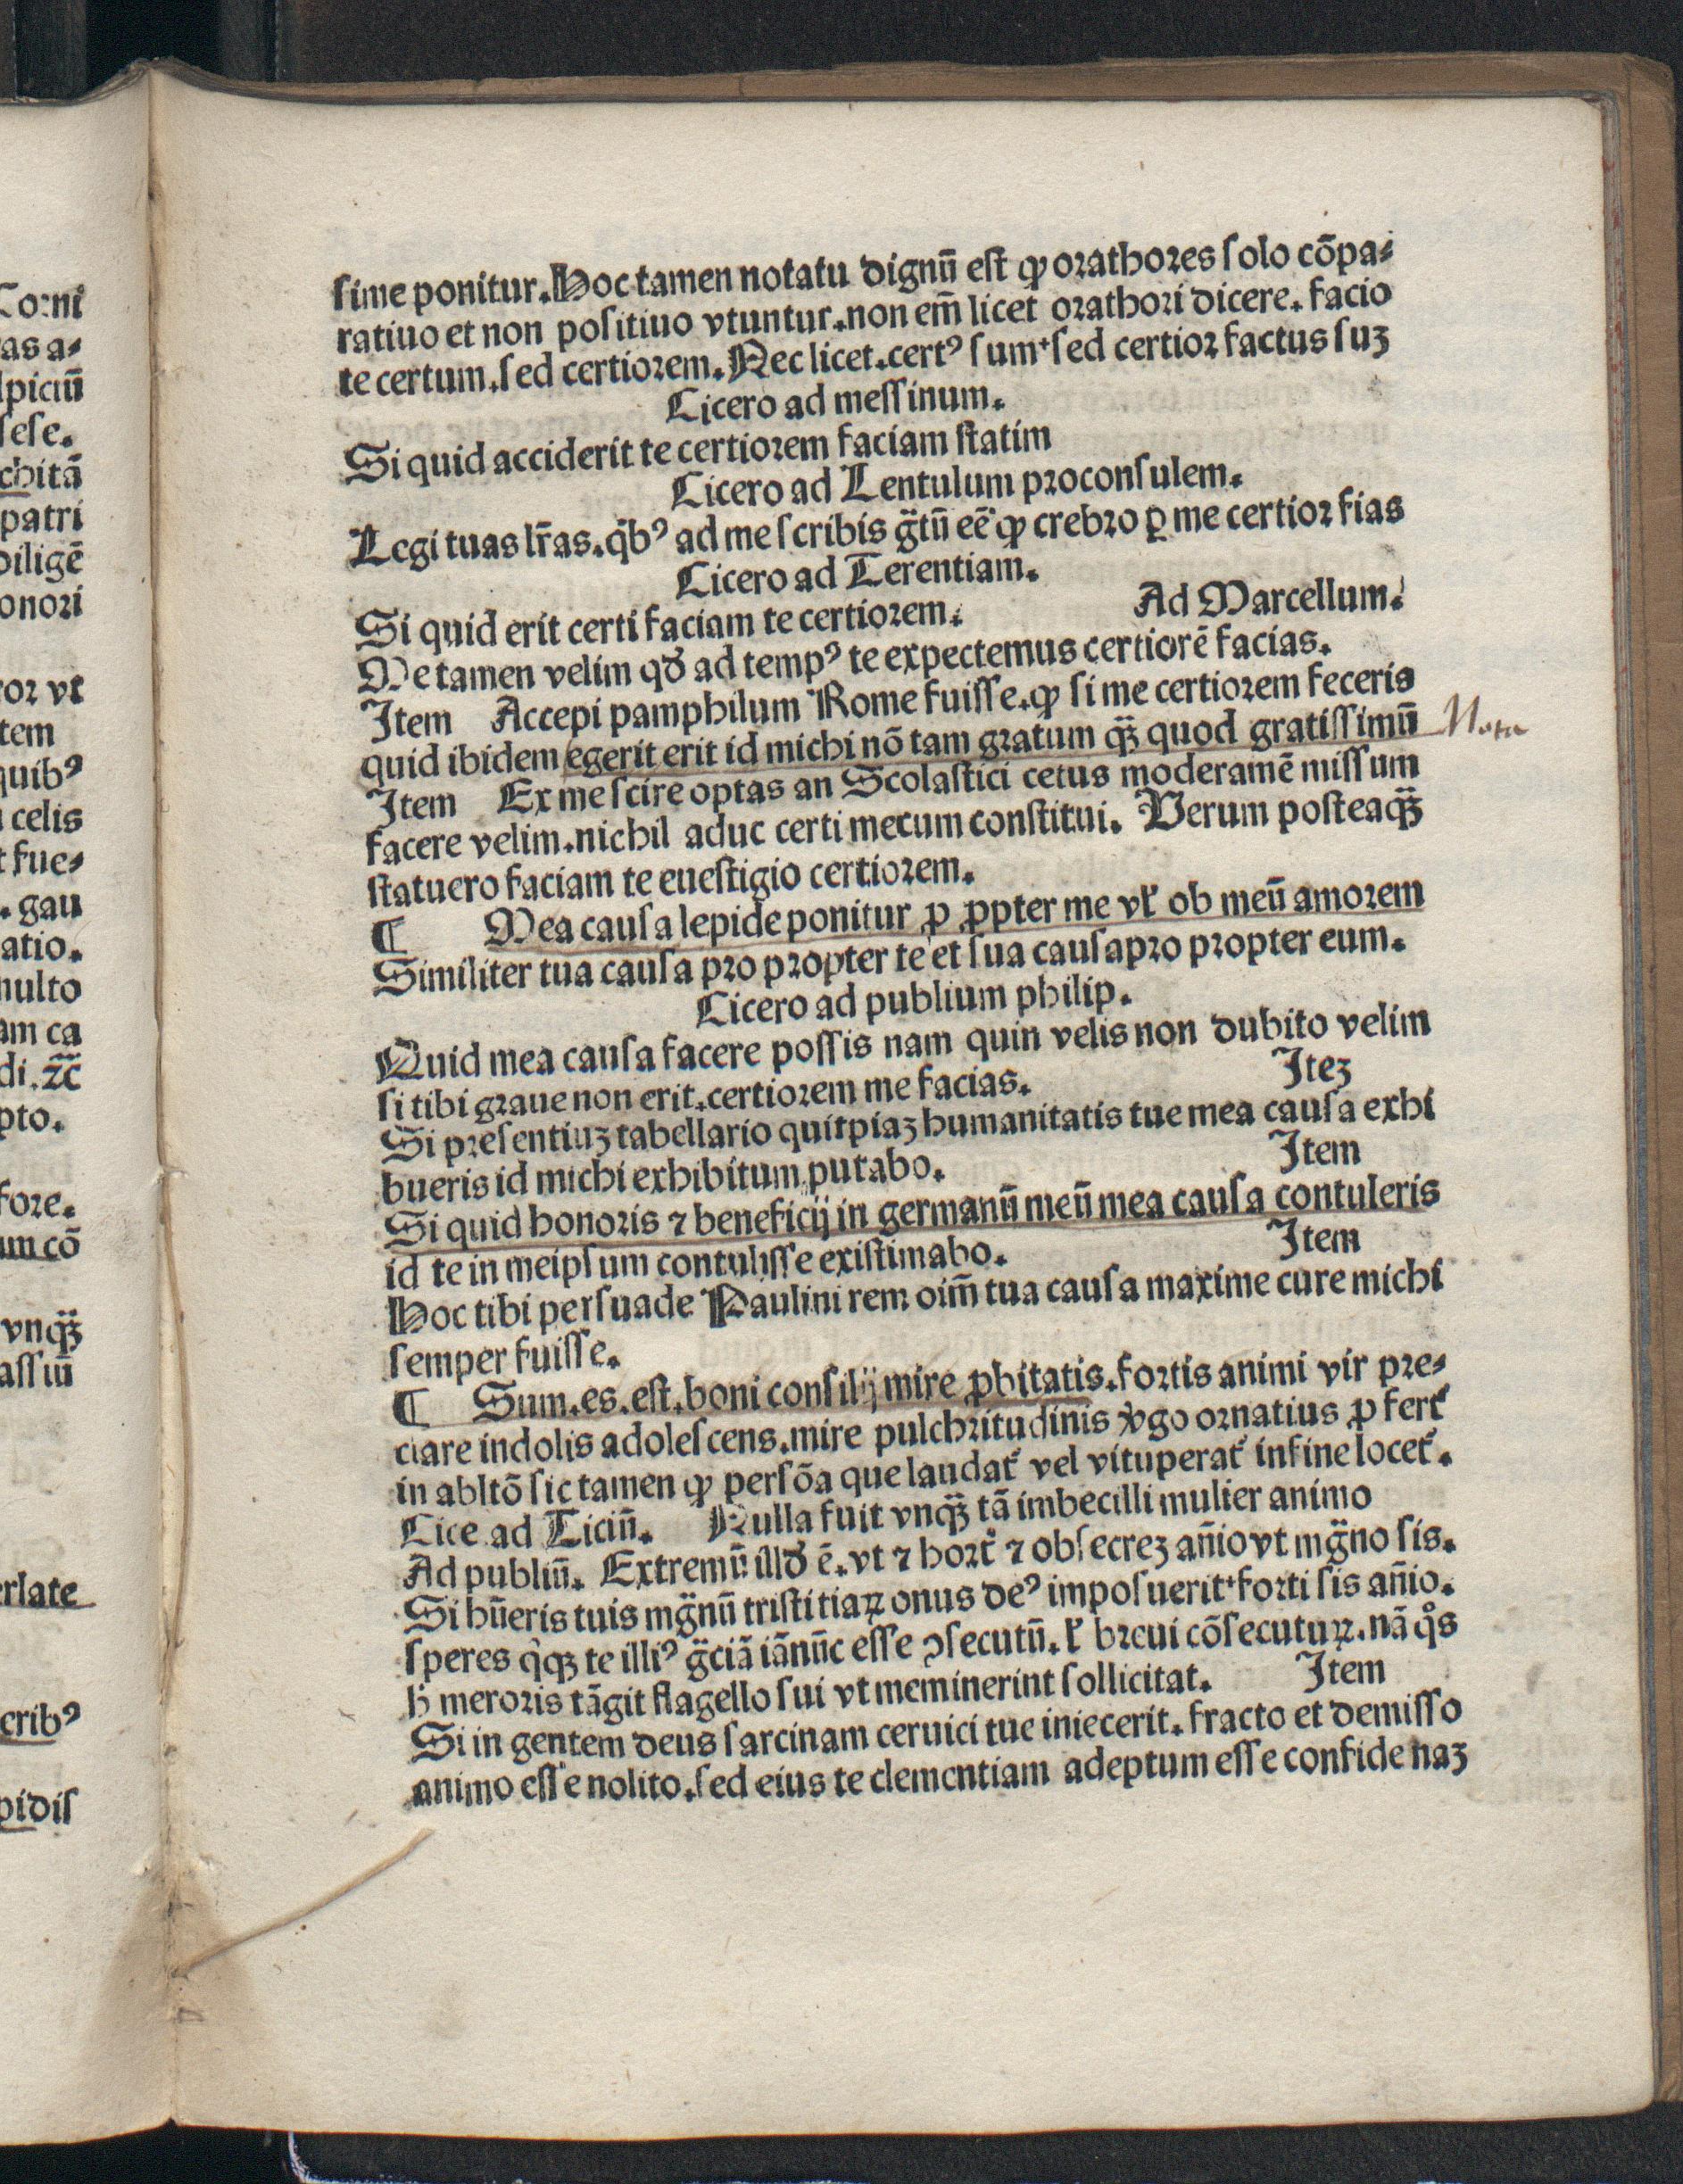 sime ponitur. Hoc tamen notatu dignū est ꝙ orathores solo cōpa⸗
ratiuo et non positiuo vtuntur. non em̄ licet orathori dicere. facio
te certum. sed certiorem. Nec licet. certꝰ sum sed certior factus suꝫ
Cicero ad messinum.
Si quid acciderit te certiorem faciam statim
Cicero ad Lentulum proconsulem.
Legi tuas lr̄as. qͥbꝰ ad me scribis gͣtū eē ꝙ crebro ꝑ me certior fias
Cicero ad Terentiam.
Si quid erit certi faciam te certiorem. Ad Marcellum.
Me tamen velim qď ad tempꝰ te expectemus certiorē facias.
Item Accepi pamphilum Rome fuisse. ꝙ si me certiorem feceris
quid ibidem egerit erit id michi nō tam gratum qͣꝫ quod gratissimū Nota
Item Ex me scire optas an Scolastici cetus moderamē missum
facere velim. nichil aduc certi mecum constitui. Verum posteaqͣꝫ
statuero faciam te euestigio certiorem.
¶ Mea causa lepide ponitur ꝓ ꝓpter me vl̓ ob meū amorem
Similiter tua causa pro propter te et sua causa pro propter eum.
Cicero ad publium philip.
Quid mea causa facere possis nam quin velis non dubito velim
si tibi graue non erit. certiorem me facias. Iteꝫ
Si presentiuꝫ tabellario quitpiaꝫ humanitatis tue mea causa exhi
bueris id michi exhibitum putabo. Item
Si quid honoris ⁊ beneficij in germanū meū mea causa contuleris
id te in meipsum contulisse existimabo. Item
Hoc tibi persuade Paulini rem oim̄ tua causa maxime cure michi
semper fuisse.
¶ Sum. es. est. boni consilij mire ꝓbitatis. fortis animi vir pre⸗
clare indolis adolescens. mire pulchritudinis ꝟgo ornatius ꝓfert᷑
in abltō sic tamen ꝙ persōa que laudat᷑ vel vituperat᷑ in fine locet᷑.
Cice ad Ticin̄. Nulla fuit vnqͣꝫ tā imbecilli mulier animo
Ad publiū. Extremū illď ē. vt ⁊ hort᷑ ⁊ obsecreꝫ an̄io vt mgͣno sis.
Si hūeris tuis mgͣnū tristitiaꝝ onus deꝰ imposuerit forti sis an̄io.
speres qͥqꝫ te illiꝰ gͣciā iānūc esse ↄsecutū. l̓ breui cōsecutuꝝ. nā qͦs
h̓ meroris tāgit flagello sui vt meminerint sollicitat. Item
Si in gentem deus sarcinam ceruici tue iniecerit. fracto et demisso
animo esse nolito. sed eius te clementiam adeptum esse confide naꝫ